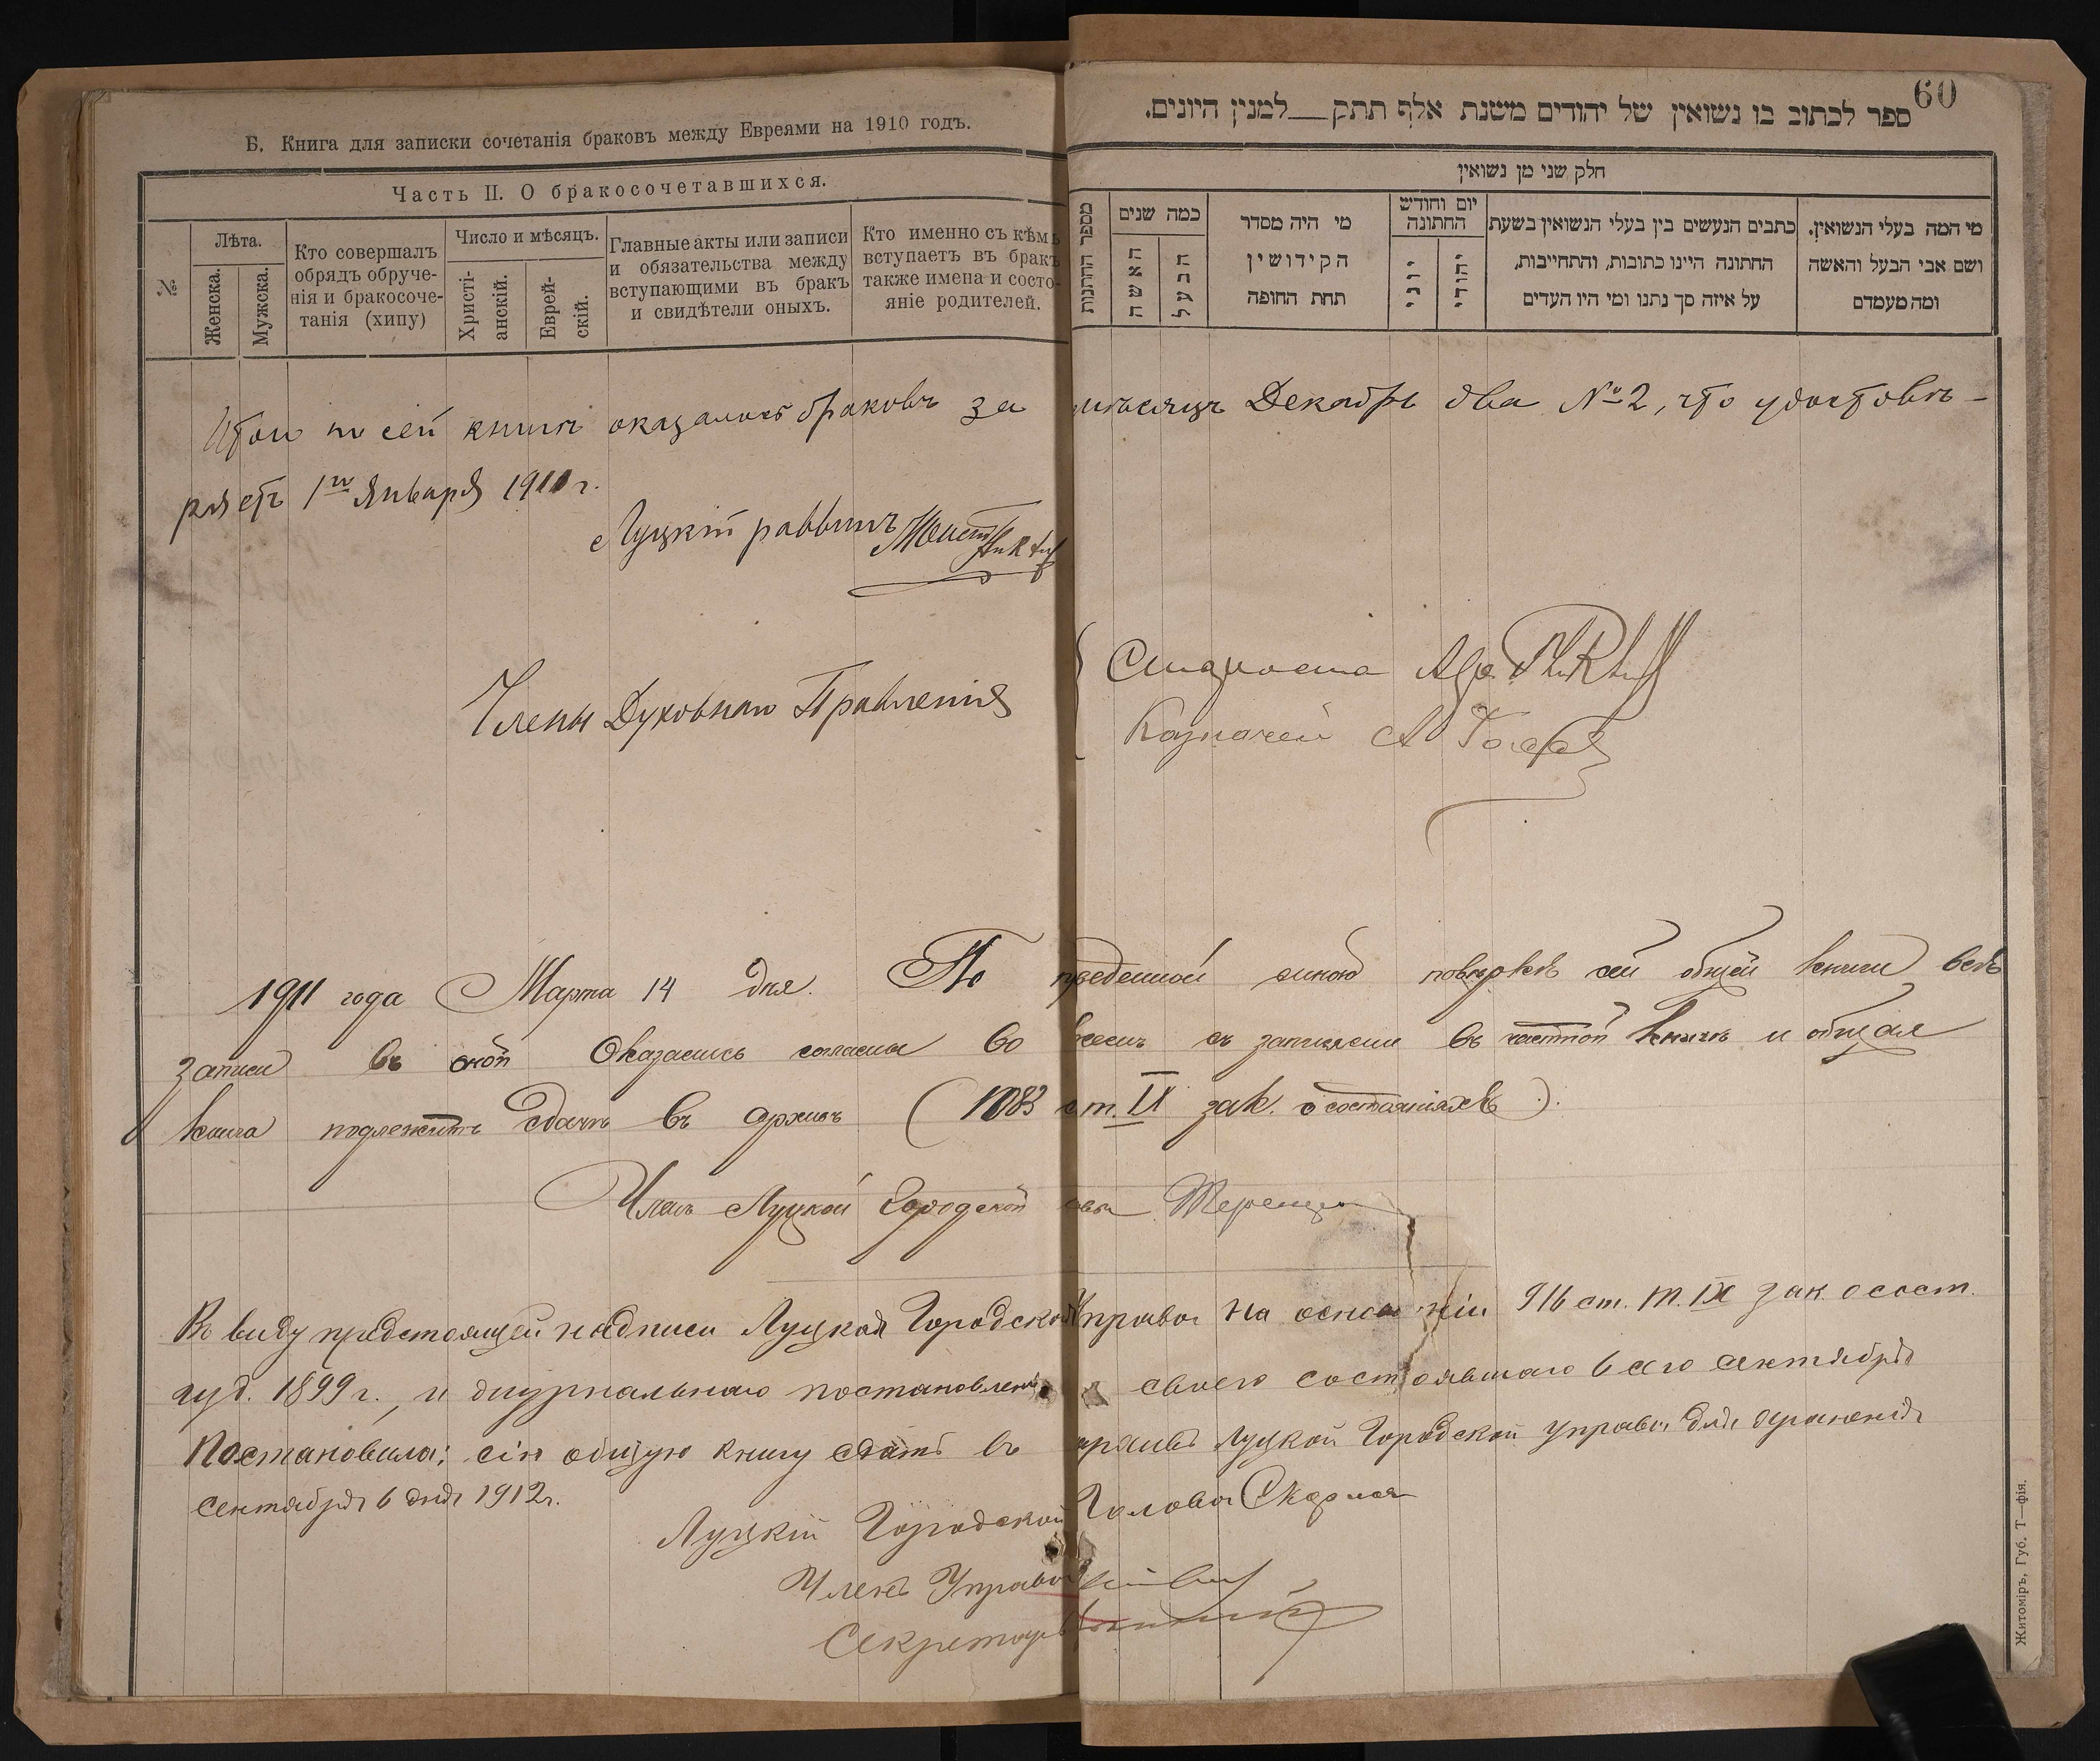 60
Б. Книга для записки сочетанія браковъ между Евреями на 1910 годъ.
Часть II. О бракосочетавшихся.
№
Лѣта.
Женска.
Мужска.
Кто совершалъ
обрядъ обруче-
нія и бракосоче-
танія (хипу)
Число и мѣсяцъ.
Христі-
анскій.
Еврей-
скій.
Главные акты или записи
и обязательства между
вступающими въ бракъ
и свидѣтели оныхъ.
Кто именно съ кѣмъ
вступаетъ въ бракъ
также имена и состо-
яніе родителей.
ספר לכתוב בו נשואין של יהודים משנת אלף תתק___למנין היונים.
חלק שני מן נשואין
מספר החתונות
כמה שנים
האשה
הבעל
מי היה מסדר
הקידושין
תחת החופה
יום וחודש
החתונה
יוני
יהודי
כתבים הנעשים בין בעלי הנשואין בשעת
החתונה היינו כתובות, והתחייבות,
על איזה סך נתנו ומי היו העדים
מי המה בעלי הנשואין.
ושם אבי הבעל והאשה
ומה מעמדם
Итого по сей книгѣ оказалось браковъ за мѣсяцъ Декабрь два №2, что удостовѣ-
ряетъ 1го Января 1911 г.
Луцкій раввинъ
Члены Духовнаго Правленія
Староста
Казначей А
1911 года Марта 14 дня. По проведенной мною повѣркѣ сей общей книги всѣ
записи въ оной оказались согласны во всемъ съ записями въ частной книгѣ и общая
книга подлежитъ сдачѣ въ архивъ (1083 ст. IX зак. о состояніяхъ).
Членъ Луцкой Городской управы
Въ виду предстоящей надписи Луцкая Городская Управа на основаніи 916 ст. т. IX зак о сост.
изд. 1899 г., и журнальнаго постановленія своего состоявшаго 6 сего сентября
Постановила: сію общую книгу сдать въ архивъ Луцкой Городской Управы для храненія
Сентября 6 дня 1912 г.
Луцкій Городской Голова
Членъ Управы
Секретарь
Житоміръ, Губ. Т—фія.